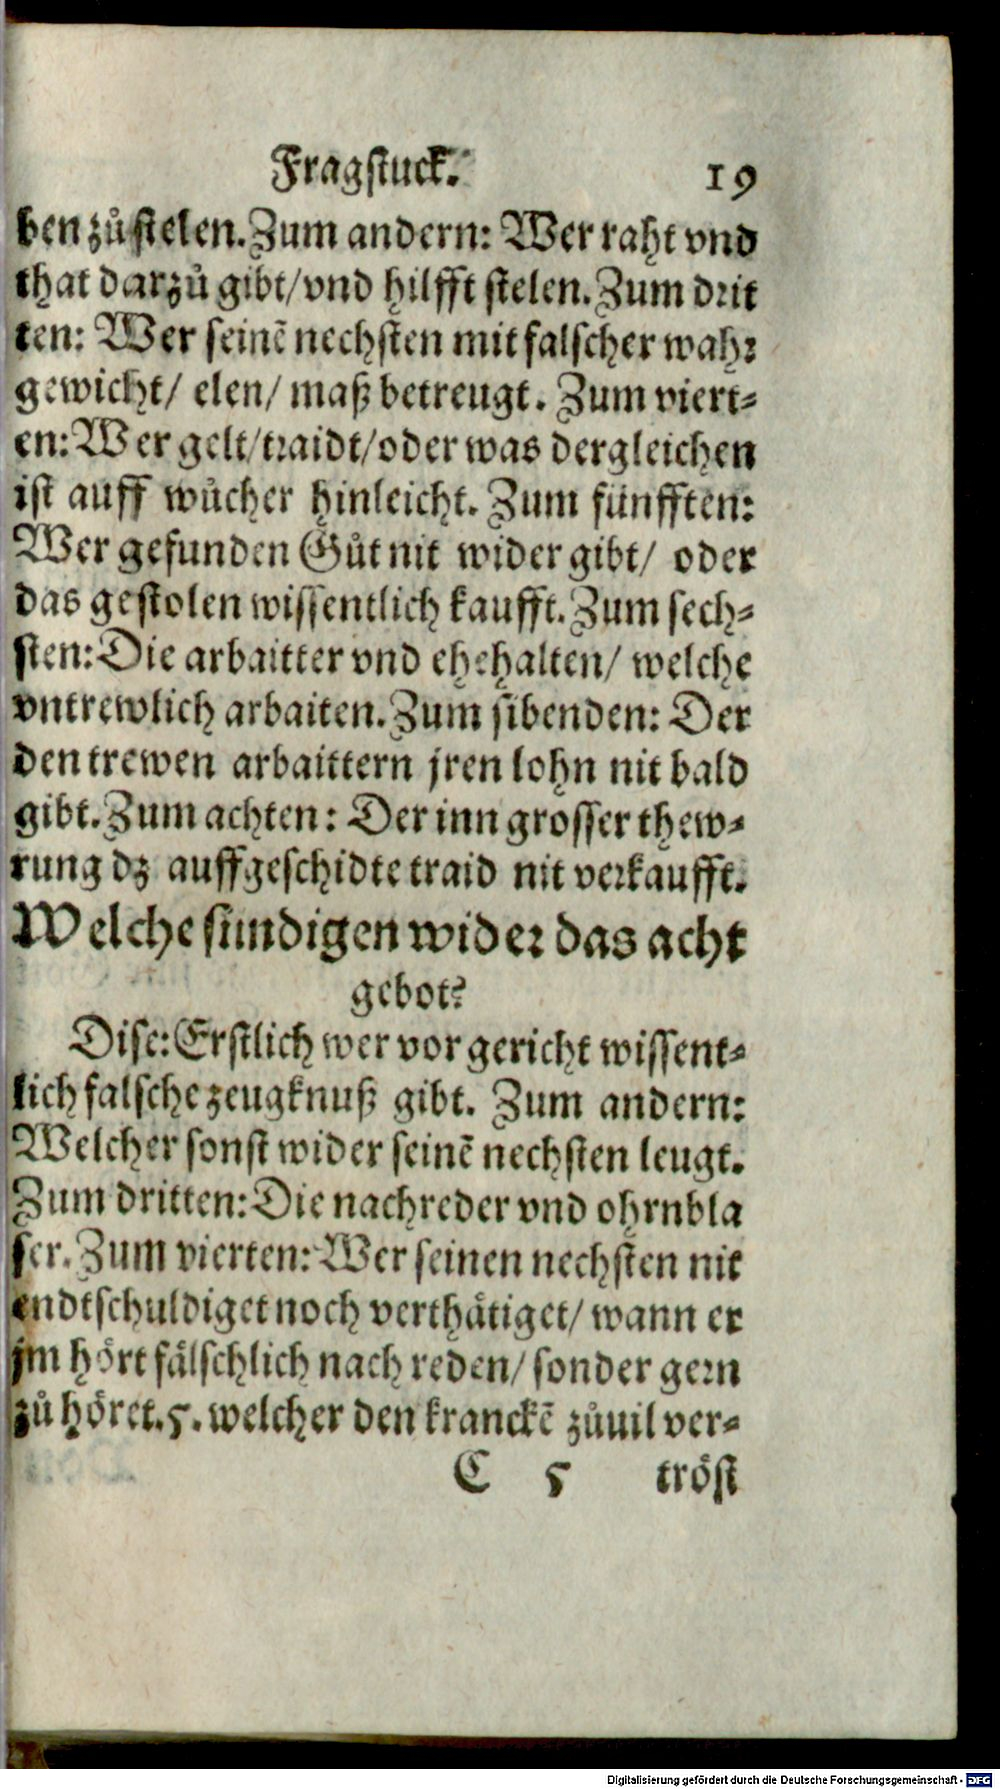 Fragstuck. 19
ben zůstelen. Zum andern: Wer raht vnd
that darzů gibt/ vnd hilfft stelen. Zum drit
ten: Wer seinē nechsten mit falscher wahr
gewicht/ elen/ maß betreugt. Zum viert-
en: Wer gelt/ traidt/ oder was dergleichen
ist auff wůcher hinleicht. Zum fünfften:
Wer gefunden Gůt nit wider gibt/ oder
das gestolen wissentlich kaufft. Zum sech-
sten: Die arbaitter vnd ehehalten/ welche
vntrewlich arbaiten. Zum sibenden: Der
den trewen arbaittern jren lohn nit bald
gibt. Zum achten: Der inn grosser thew-
rung dz auffgeschidte traid nit verkaufft.
Welche sündigen wider das acht
gebot?
Dise: Erstlich wer vor gericht wissent-
lich falsche zeugknuß gibt. Zum andern:
Welcher sonst wider seinē nechsten leugt.
Zum dritten: Die nachreder vnd ohrnbla
ser. Zum vierten: Wer seinen nechsten nit
endtschuldiget noch verthätiget/ wann er
jm hört fälschlich nach reden/ sonder gern
zů höret. 5. welcher den kranckē zůuil ver-
C 5 tröst
Digitalisierung gefördert durch die Deutsche Forschungsgemeinschaft - DFG